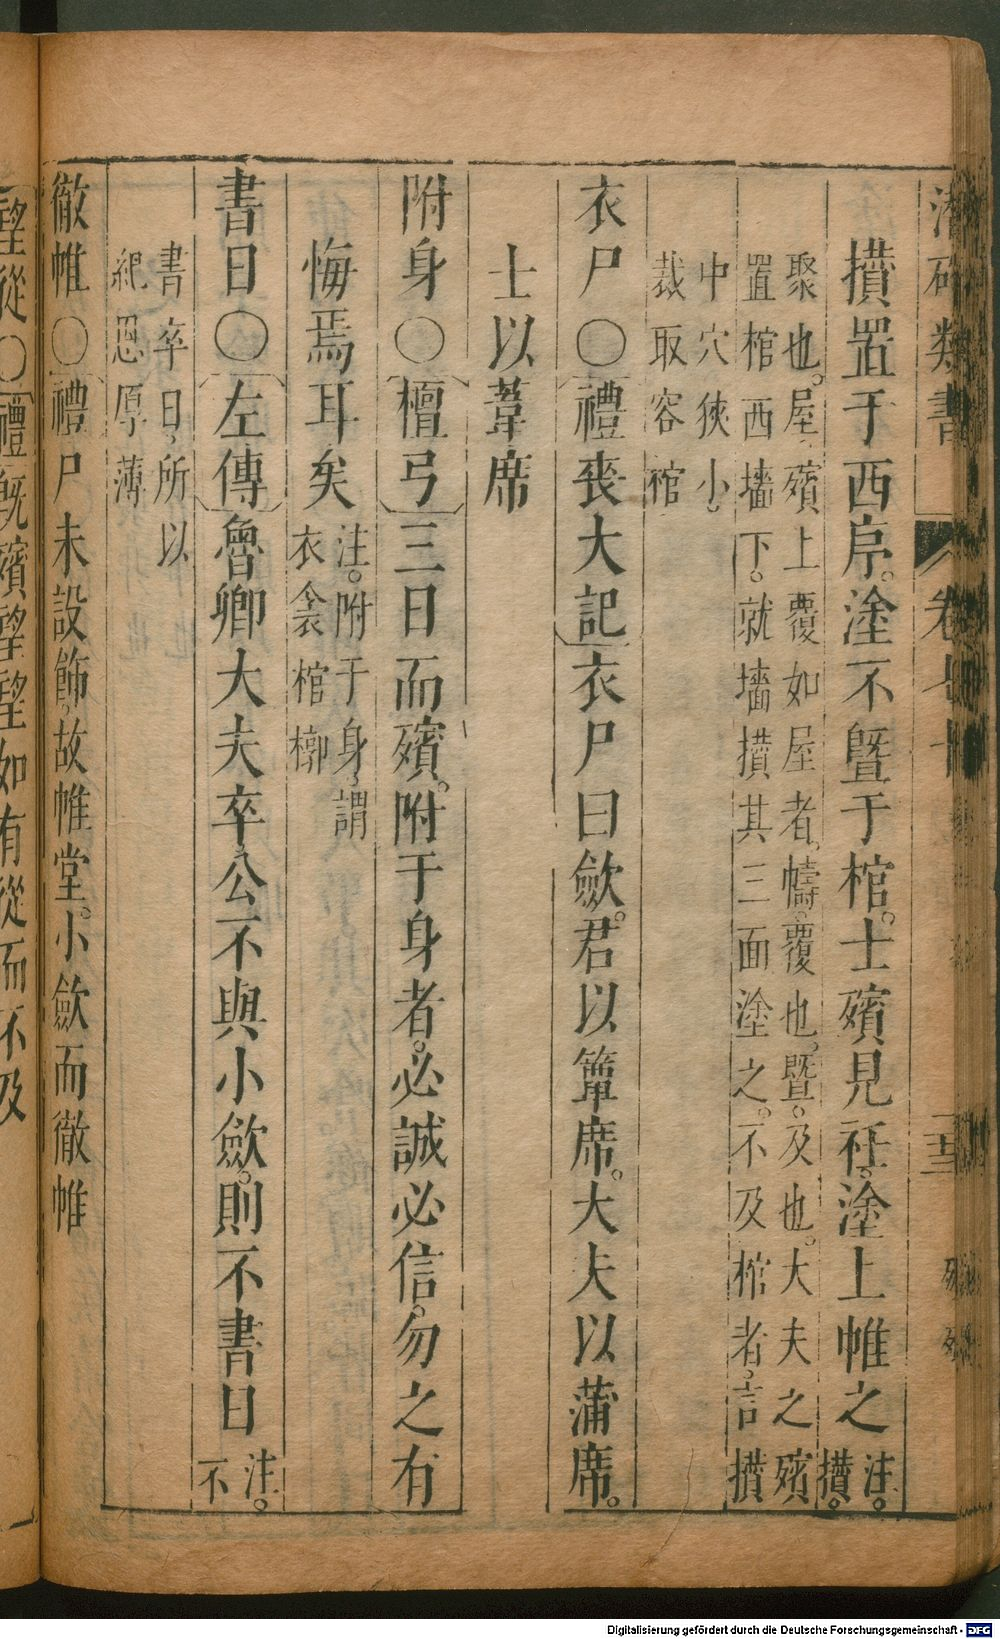 類書 卷七十
攢置于西序。塗不暨于棺。士殯見衽。塗上帷之
注。
攢。
聚也。屋、殯上覆如屋者。幬、覆也。暨、及也。大夫之殯
置棺西墻下。就墻攢其三面塗之。不及棺者。言攢
中穴狹小。
裁取容棺
衣尸○禮喪大記衣尸曰歛。君以簟席。大夫以蒲席。
士以葦席
附身○檀弓三日而殯。附于身者。必誠必信。勿之有
悔焉耳矣
注。附于身、謂
衣衾棺槨
書日○左傳魯卿大夫卒公不與小歛。則不書日
注。
不
書卒日、所以
紀恩厚薄
徹帷○禮尸未設飾、故帷堂。小歛而徹帷
望從○禮既殯望望如有從而不及
Digitalisierung gefördert durch die Deutsche Forschungsgemeinschaft - DFG